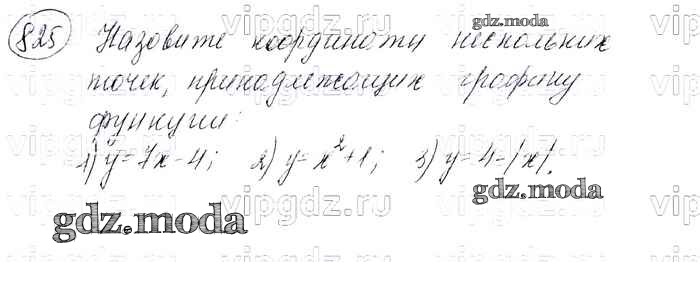 825 Назовите координаты нескольких
gdz.moda
точек, принадлежащих графику
функции:
1) y=7x-4; 2) y=x²+1; 3) y=4-|x|.
gdz.moda
gdz.moda
vipgdz.ru vipgdz.ru vipgdz.ru